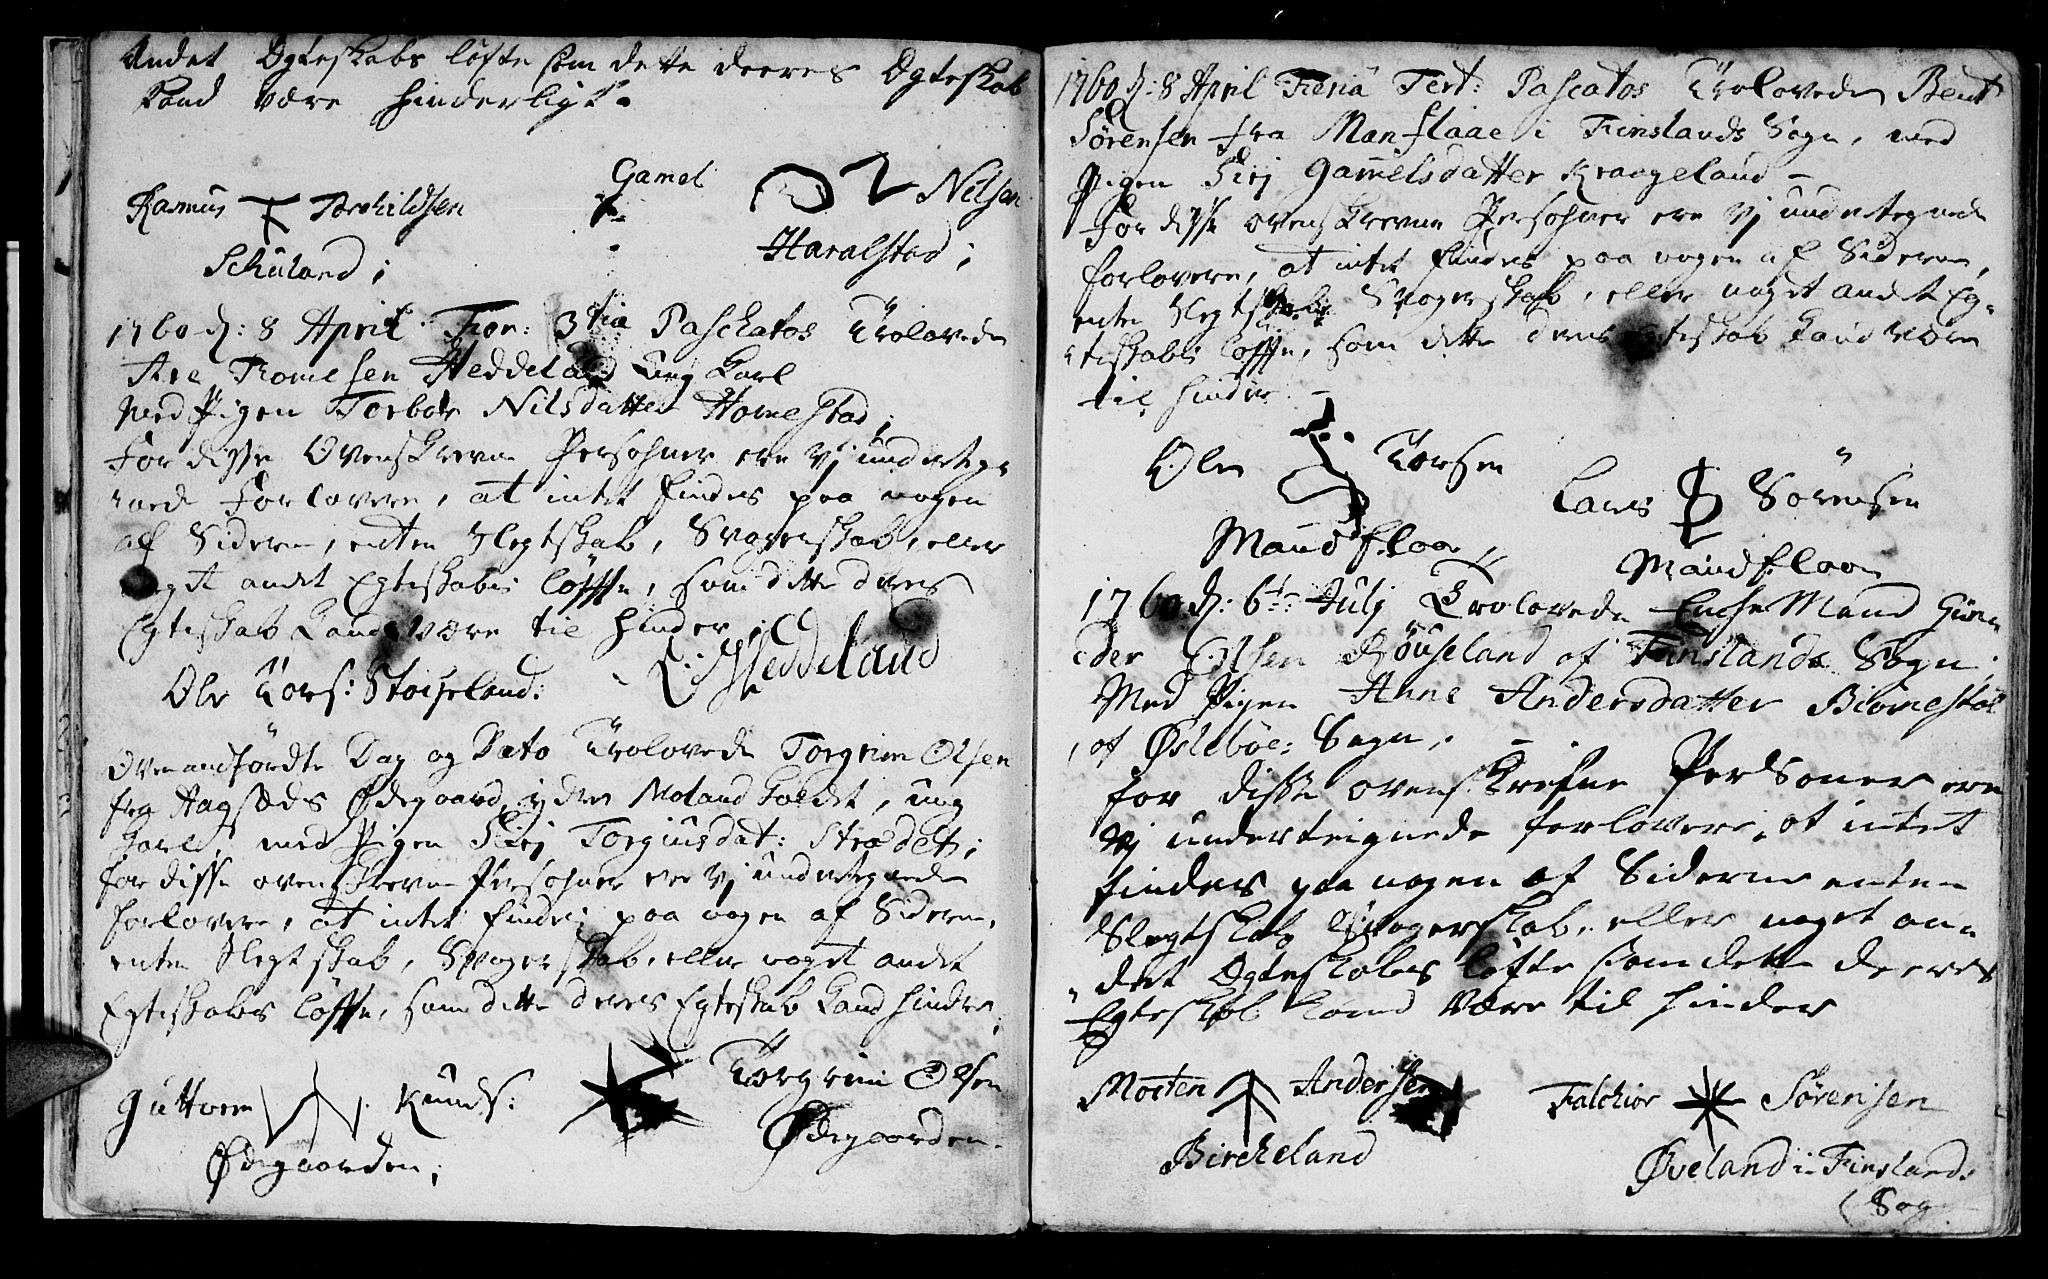 Andet Egteskabs løfte som dette deeres Egteskab
kand være hinderligt.
Rasmus Torkildsen
Schuland;
Gamel Nilsen
Haralstad;
1760 d: 8 April Fer: 3tia Paschatos Trolovede
Are Tromesen Heddeland ung Karl
Med Pigen Torbor Nilsdatter Homestad;
For disse Ovenskrevne Persohner ere vj underteg-
nede Forlovere, at intet findes paa nogen
af Siderne, enten Slegtskab, Svogerskab, eller
noget andet Egteskabs løffte, som dette deres
Egteskab kand være til hinder.
Ole Tors: Stoiseland:
Heddeland
Ovenanførdte Dag og Dato Trolovede Torgrim Olsen
fra Hagsøds Ødegaard, ydre Moland , ung
Karl, med Pigen Sirj Torgiusdat: Strædet;
for disse ovenskrevne Persohner ere vj undertegnede
forlovere, at intet findes paa nogen af Siderne,
enten Slegtskab, Svogerskab, eller noget andet
Egteskabs løffte, som dette deres Egteskab kand hindre;
Guttorm Knuds:
Ødegaarden;
Torgrim Olsen
Ødegaarden.
1760 d: 8 April Feria Tert: Pascatos Trolovede Bent
Sørensen fra Manflaae i Finslands Sogn, med
Pigen Sirj Gamelsdatter Krangeland -
For disse ovenskrevne Persohner ere vj undertegnede
forlovere, at intet findes paa nogen af Siderne,
enten Slegtskab, Svogerskab, eller noget andet Eg-
teskabs løffte, som dette deres Egteskab kand være
til hinder. -
Ole Torsen
Maudfloa
Lars Sörensen
Maudfloa
1760 d: 6te Julj Trolovede Enche Mand Gun-
der Olsen Røuseland af Finslands Sogn;
Med Pigen Anne Andersdatter Biornestøl
af Øslebøe: Sogn. -
for disse ovenskrefne Personer ere
vj underteignede forlovere, at intet
findes paa nogen af Siderne enten
Slegtskab Svogerskab, eller noget an-
det Egteskabs løfte som dette deeres
Egteskab kand være til hinder
Morten Andersen
Bircheland
Falchior Sørensen
Øveland i Finslands
Sogn